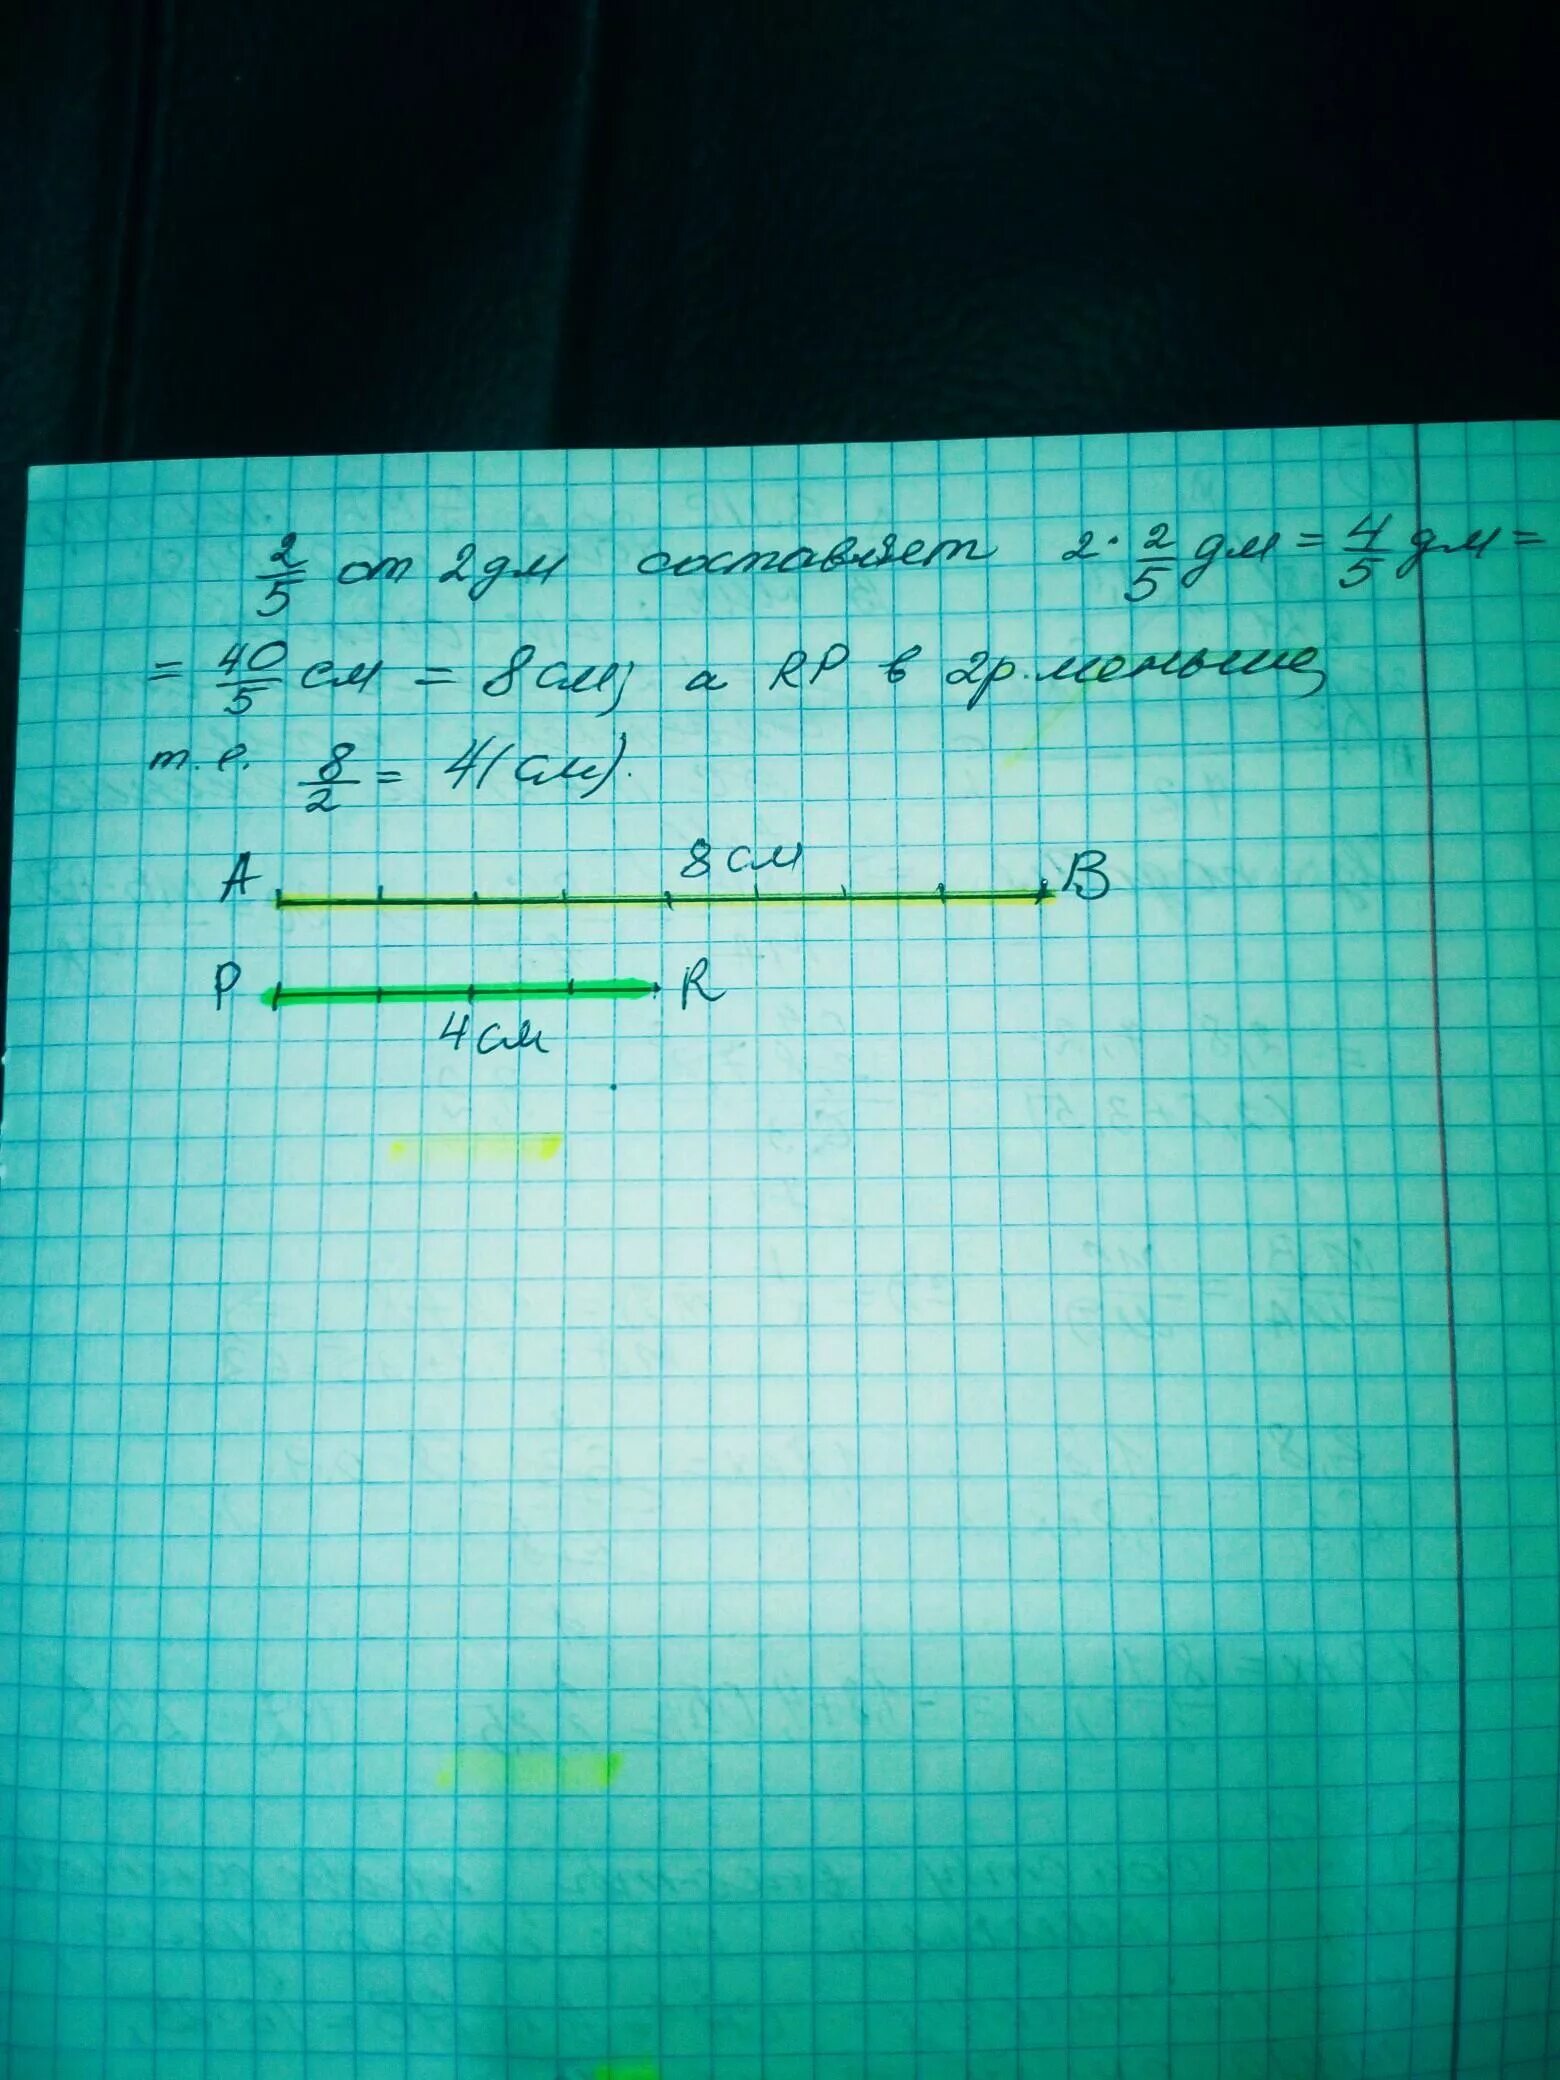 2/5 от 2дм составляет 2·2/5 дм = 4/5 дм =
= 40/5 см = 8 см, а RP в 2р. меньше,
т.е. 8/2 = 4(см).
A 8 см B
P R
4 см